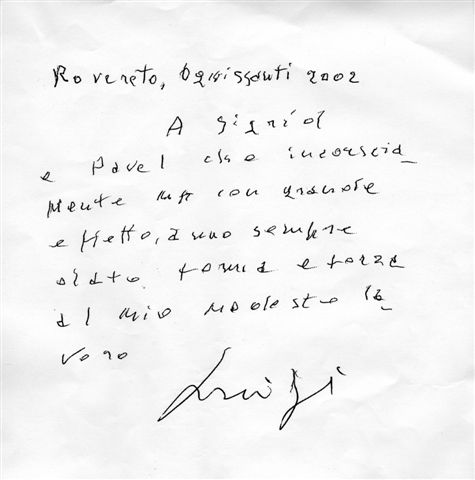 Rovereto, Ognissanti 2002
A
e Pavel che inconscia_
mente ma con grande
effetto, anno sempre
dato forma e forza
al mio modesto la_
voro
Luigi